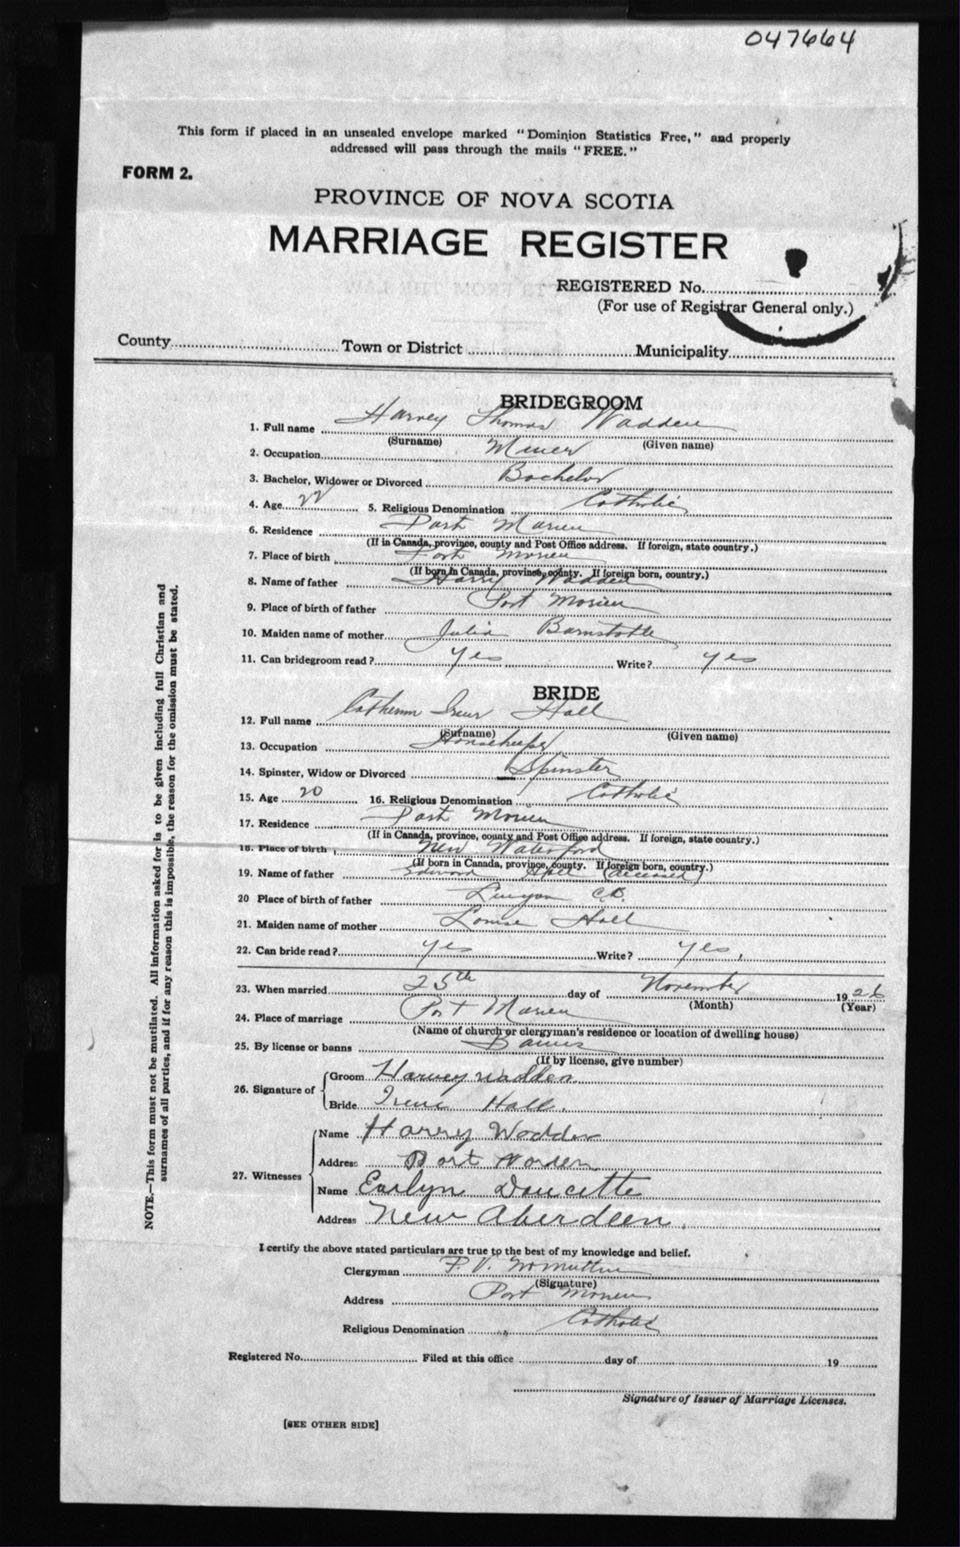 047664
This form if placed in an unsealed envelope marked "Dominion Statistics Free," and properly
addressed will pass through the mails "FREE."
FORM 2.
PROVINCE OF NOVA SCOTIA
MARRIAGE REGISTER
REGISTERED No.
(For use of Registrar General only.)
County Town or District Municipality
BRIDEGROOM
1. Full name Harvey Thomas Wadden
(Surname) (Given name)
2. Occupation Miner
3. Bachelor, Widower or Divorced Bachelor
4. Age 22 5. Religious Denomination Catholic
6. Residence Port Morien
(If in Canada, province, county and Post Office address. If foreign, state country.)
7. Place of birth Port Morien
(If born in Canada, province, county. If foreign born, country.)
8. Name of father Harry Wadden
9. Place of birth of father Port Morien
10. Maiden name of mother Julia
11. Can bridegroom read? yes Write? yes
BRIDE
12. Full name Hall
(Surname) (Given name)
13. Occupation Housekeeper
14. Spinster, Widow or Divorced Spinster
15. Age 20 16. Religious Denomination Catholic
17. Residence Port Morien
(If in Canada, province, county and Post Office address. If foreign, state country.)
18. Place of birth New Waterford
(If born in Canada, province, county. If foreign born, country.)
19. Name of father Edward Hall (deceased)
20 Place of birth of father Lingan C.B.
21. Maiden name of mother Louise Hall
22. Can bride read? yes Write? yes
23. When married 25th day of November 1926
(Month) (Year)
24. Place of marriage Port Morien
(Name of church or clergyman's residence or location of dwelling house)
25. By license or banns Banns
(If by license, give number)
26. Signature of
Groom Harvey Wadden
Bride Irene Hall.
27. Witnesses
Name Harry Wadden
Address Port Morien
Name Evelyn Doucette
Address New Aberdeen.
I certify the above stated particulars are true to the best of my knowledge and belief.
Clergyman
(Signature)
Address Port Morien
Religious Denomination Catholic
Registered No. Filed at this office day of 19
Signature of Issuer of Marriage Licenses.
[SEE OTHER SIDE]
NOTE.—This form must not be mutilated. All information asked for is to be given including full Christian and
surnames of all parties, and if for any reason this is impossible, the reason for the omission must be stated.